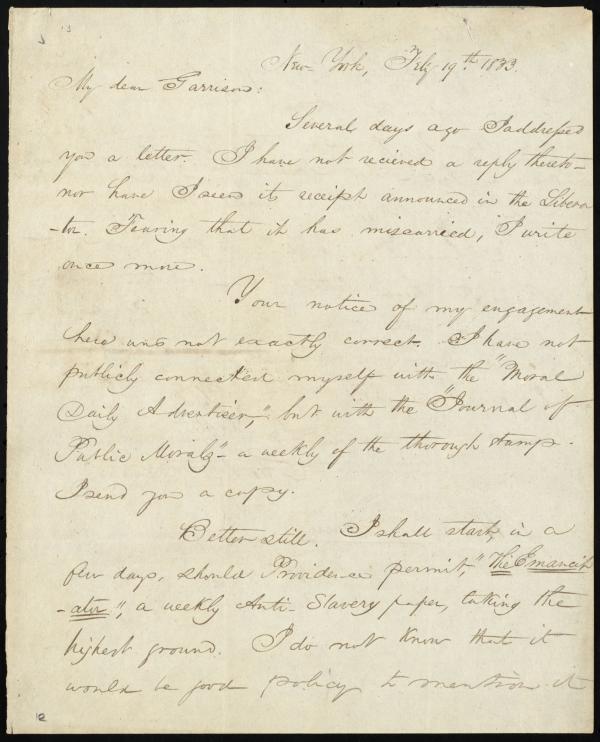 New-York, Feb. 19th 1833.
My dear Garrison:
Several days ago I addressed
you a letter. I have not recieved a reply thereto-
nor have I seen its receipt announced in the Libera
-tor. Fearing that it has miscarried, I write
once more.
Your notice of my engagement
here was not exactly correct. I have not
publicly connected myself with the "Moral
Daily Advertiser," but with the "Journal of
Public Morals" - a weekly of the thorough stamp.
I send you a copy.
Better still. I shall start, in a
few days, should Providence permit, "The Emancip
-ator", a weekly Anti-Slavery paper, taking the
highest ground. I do not know that it
would be good policy to mention it
12